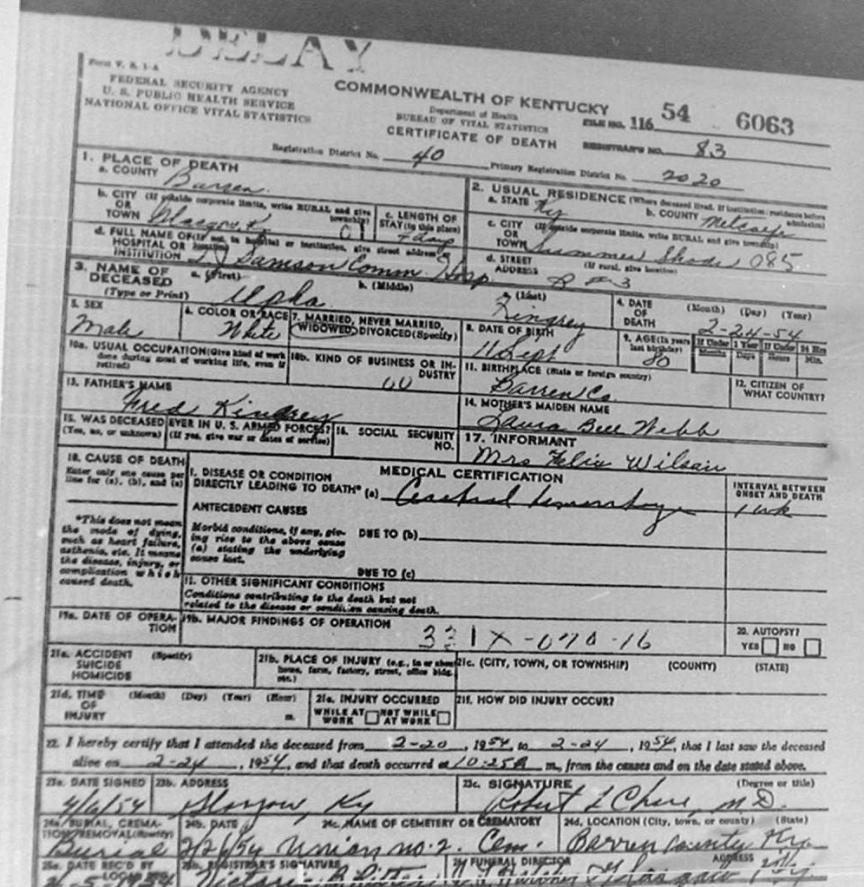 DELAY
Form V. S. 1-A
FEDERAL SECURITY AGENCY
U. S. PUBLIC HEALTH SERVICE
NATIONAL OFFICE VITAL STATISTICS
COMMONWEALTH OF KENTUCKY
Department of Health
BUREAU OF VITAL STATISTICS
CERTIFICATE OF DEATH
FILE NO. 116 54 6063
REGISTRAR'S NO. 83
Registration District No. 40 Primary Registration District No. 2020
1. PLACE OF DEATH
a. COUNTY Barren
2. USUAL RESIDENCE (Where deceased lived. If institution: residence before admission)
a. STATE Ky b. COUNTY Metcalfe
b. CITY (If outside corporate limits, write RURAL and give township)
OR
TOWN Glasgow, K
c. LENGTH OF STAY (in this place)
c. CITY (If outside corporate limits, write RURAL and give township)
OR
TOWN Summer Shade 085
d. FULL NAME OF (If not in hospital or institution, give street address or location)
HOSPITAL OR
INSTITUTION T J Samson Comm. Hosp.
d. STREET (If rural, give location)
ADDRESS R # 3
3. NAME OF DECEASED
(Type or Print)
a. (First) b. (Middle) c. (Last)
Alpha Kingrey
4. DATE OF DEATH (Month) (Day) (Year)
2-24-54
5. SEX
Male
6. COLOR OR RACE
White
7. MARRIED, NEVER MARRIED, WIDOWED, DIVORCED (Specify)
8. DATE OF BIRTH
11 Sept
9. AGE (In years last birthday)
80
If Under 1 Year If Under 24 Hrs
Months Days Hours Min.
10a. USUAL OCCUPATION (Give kind of work done during most of working life, even if retired)
10b. KIND OF BUSINESS OR INDUSTRY
11. BIRTHPLACE (State or foreign country)
Barren Co.
12. CITIZEN OF WHAT COUNTRY?
13. FATHER'S NAME
Fred Kingrey
14. MOTHER'S MAIDEN NAME
Laura Bell Webb
15. WAS DECEASED EVER IN U. S. ARMED FORCES?
(Yes, no, or unknown) (If yes, give war or dates of service)
16. SOCIAL SECURITY NO.
17. INFORMANT
Mrs Felix Wilson
18. CAUSE OF DEATH
Enter only one cause per line for (a), (b), and (c)
MEDICAL CERTIFICATION
INTERVAL BETWEEN ONSET AND DEATH
I. DISEASE OR CONDITION
DIRECTLY LEADING TO DEATH* (a) Cerebral hemorrhage 1 wk
*This does not mean the mode of dying, such as heart failure, asthenia, etc. It means the disease, injury, or complication which caused death.
ANTECEDENT CAUSES
Morbid conditions, if any, giving rise to the above cause (a) stating the underlying cause last.
DUE TO (b)
DUE TO (c)
II. OTHER SIGNIFICANT CONDITIONS
Conditions contributing to the death but not
related to the disease or condition causing death.
19a. DATE OF OPERATION
19b. MAJOR FINDINGS OF OPERATION
331X-070-16
20. AUTOPSY?
YES NO
21a. ACCIDENT (Specify)
SUICIDE
HOMICIDE
21b. PLACE OF INJURY (e.g., in or about home, farm, factory, street, office bldg. etc.)
21c. (CITY, TOWN, OR TOWNSHIP) (COUNTY) (STATE)
21d. TIME (Month) (Day) (Year) (Hour)
OF
INJURY m.
21e. INJURY OCCURRED
WHILE AT WORK NOT WHILE AT WORK
21f. HOW DID INJURY OCCUR?
22. I hereby certify that I attended the deceased from 2-20, 1954, to 2-24, 1954, that I last saw the deceased
alive on 2-24, 1954, and that death occurred at 10:25 m., from the causes and on the date stated above.
23a. DATE SIGNED 23b. ADDRESS 23c. SIGNATURE (Degree or title)
4/6/54 Glasgow, Ky Robert L Chase, M.D.
24a. BURIAL, CREMATION, REMOVAL (Specify) 24b. DATE 24c. NAME OF CEMETERY OR CREMATORY 24d. LOCATION (City, town, or county) (State)
Burial 2/26/54 Union no. 2. Cem. Barren County Ky.
25a. DATE REC'D BY LOCAL REG. 25b. REGISTRAR'S SIGNATURE 26 FUNERAL DIRECTOR ADDRESS
1954 Glasgow Ky